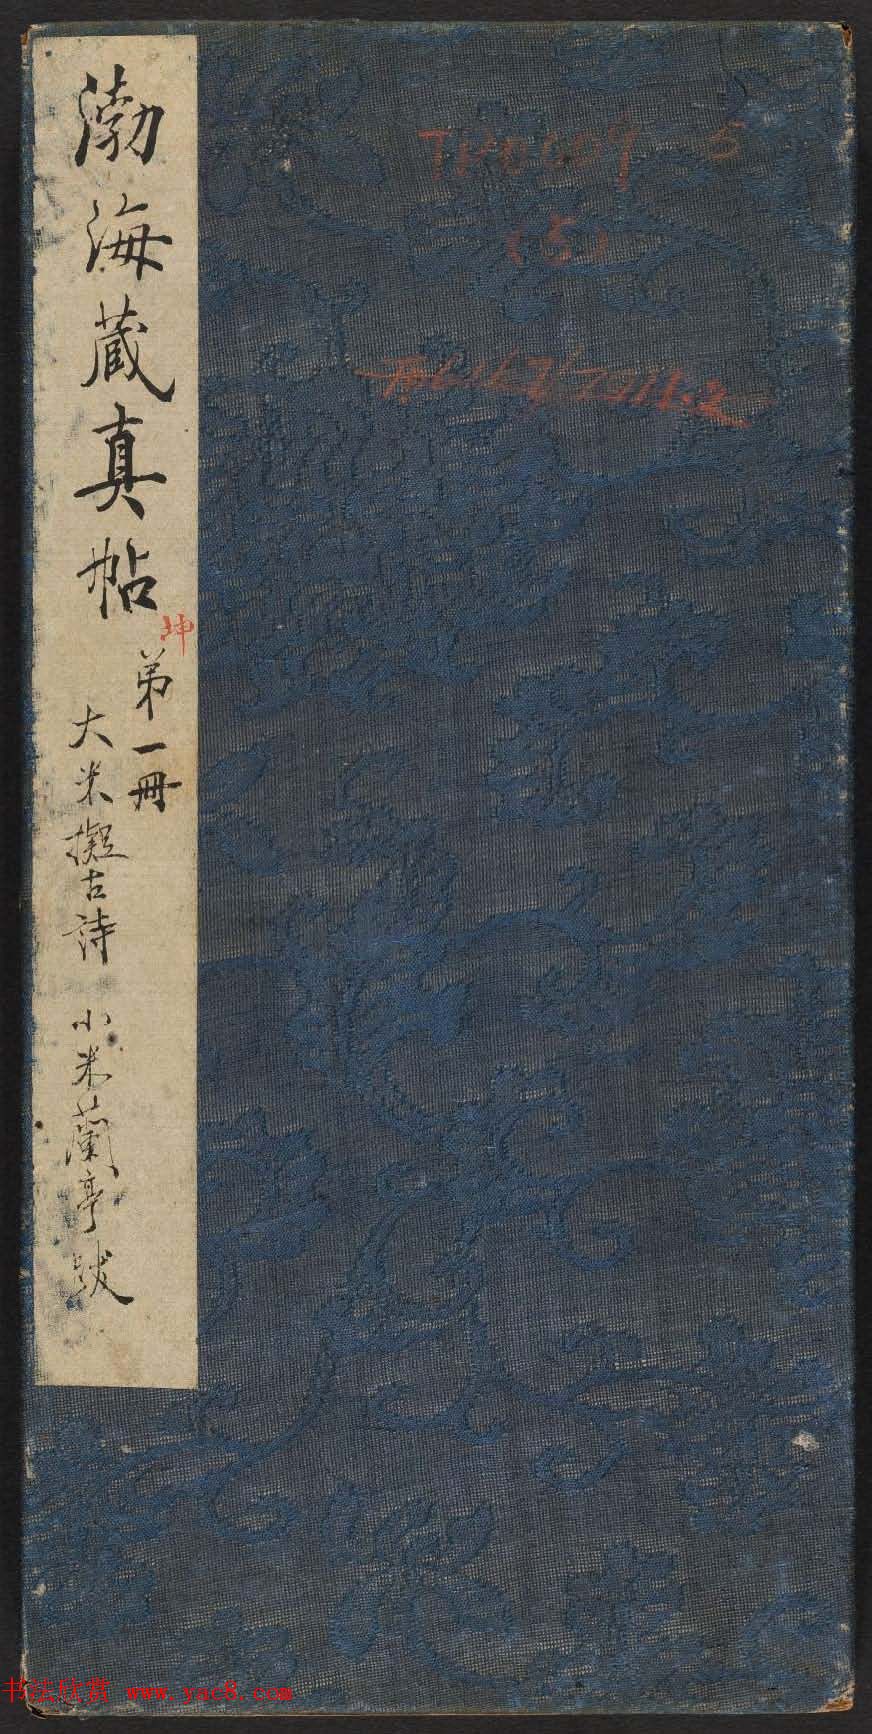 渤海蔵真帖
坤
弟一冊
大米擬古詩 小米蘭亭跋
TP0609 5
(5)
书法欣赏 www.yac8.com